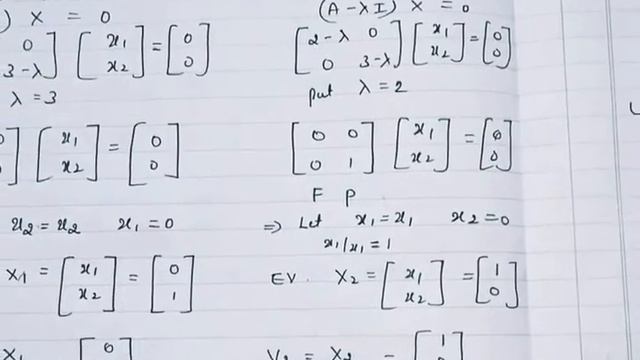 ) X = 0
0
3-λ] [x1 x2] = [0 0]
λ = 3
0
] [x1 x2] = [0 0]
x2 = x2   x1 = 0
X1 = [x1 x2] = [0 1]
X1   [0
(A - λI) X = 0
[2-λ 0
0 3-λ] [x1 x2] = [0 0]
put λ = 2
[0 0
0 1] [x1 x2] = [0 0]
F P
⇒ Let x1 = x1   x2 = 0
x1/x1 = 1
EV. X2 = [x1 x2] = [1 0]
= X2 = [1